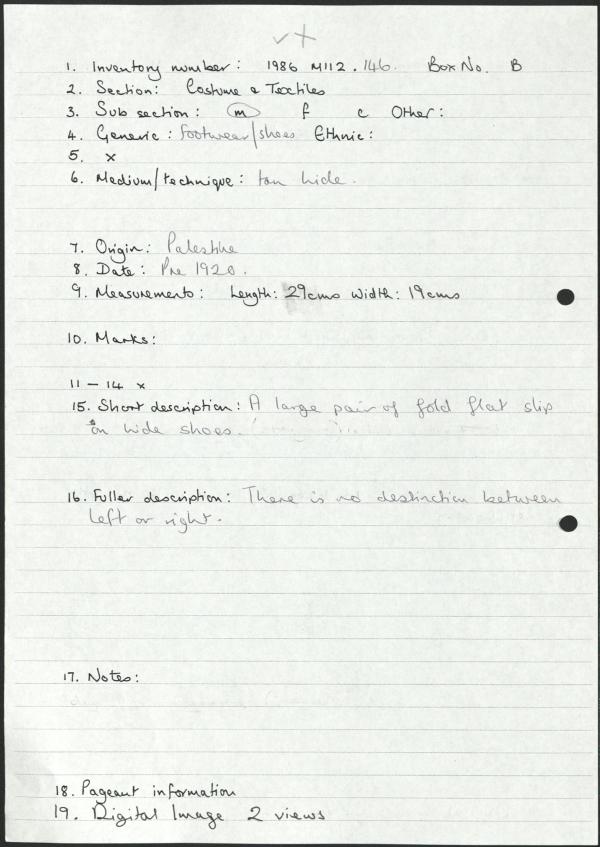 1. Inventory number: 1986 M112.146. Box No. B
2. Section: Costume & Textiles
3. Sub section: m f c Other:
4. Generic: footwear/shoes Ethnic:
5. x
6. Medium/technique: tan hide.
7. Origin: Palestine
8. Date: Pre 1920.
9. Measurements: Length: 29cms Width: 19cms
10. Marks:
11 - 14 x
15. Short description: A large pair of fold flat slip
on hide shoes.
16. Fuller description: There is no destinction between
left or right.
17. Notes:
18. Pageant information
19. Digital Image 2 views